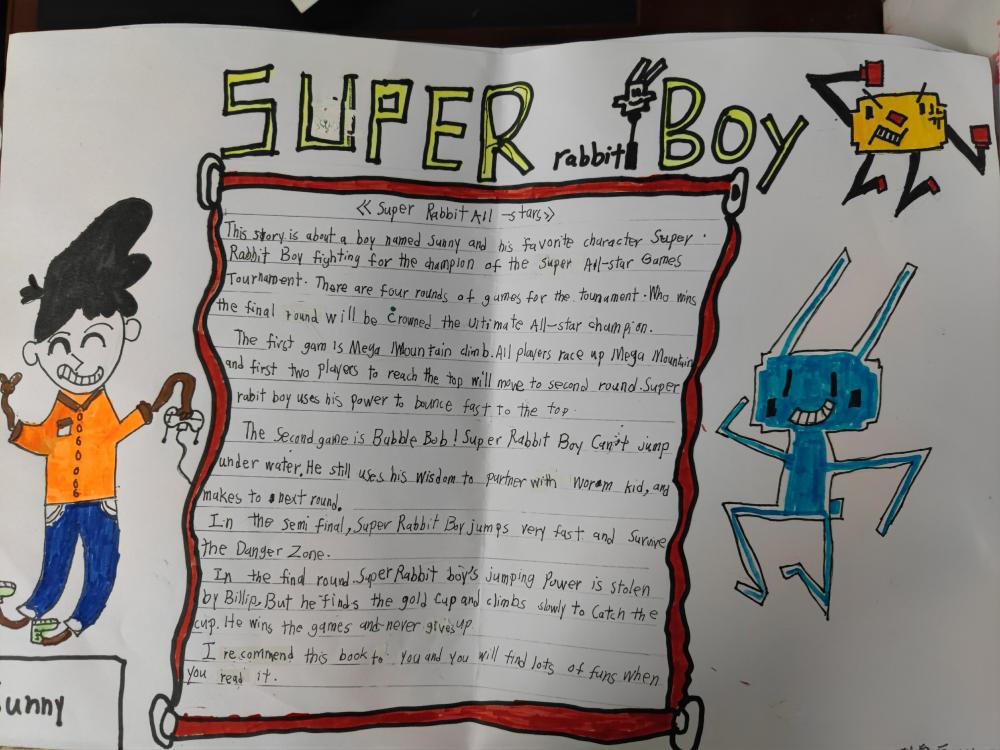 SUPER rabbit BOY
《Super Rabbit All-stars》
This story is about a boy named Sunny and his favorite character Super
Rabbit Boy fighting for the champion of the Super All-star Games
Tournament. There are four rounds of games for the tounament. Who wins
the final round will be crowned the Ultimate All-star champion.
The first gam is Mega Mountain climb. All players race up Mega Mountain
and first two players to reach the top will move to second round. Super
rabit boy uses his power to bounce fast to the top.
The Second game is Bubble Bob! Super Rabbit Boy Can't jump
under water. He still uses his wisdom to partner with Woram kid, and
makes to next round.
In the semi final, Super Rabbit Boy jumps very fast and Survive
the Danger Zone.
In the final round. Super Rabbit boy's jumping Power is stolen
by Billip. But he finds the gold cup and climbs slowly to Catch the
cup. He wins the games and never gives up
I recommend this book to you and you will find lots of funs when
you read it.
Sunny